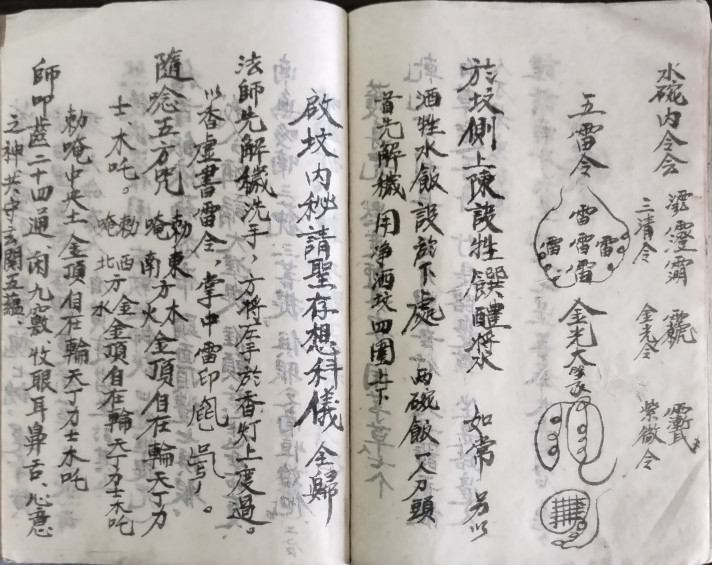 水碗内令会
三清令
金光令
紫微令
五雷令
雷
雷雷雷雷
雷雷
金光大
於坟側上陳設牲饌醴將水 如常 另以
酒牲水飯設於下處 两碗飯一人分頭
首先解穢 用净洒坟四圍上下
啟坟内秘請聖存想科儀 全歸
法師先解穢洗手，方將左手於香灯上度過。
以香虚書雷令，掌中雷印
隨唸五方咒 勅唵東方木金頂自在輪天丁力
南方火
士、木吒。勅唵西方金金頂自在輪天丁力士木吒
北方水
勅唵中央土金頂自在輪天丁力士木吒
師叩齒二十四通 闭九竅 收眼耳鼻舌、心意
之神共守玄関五蕴、